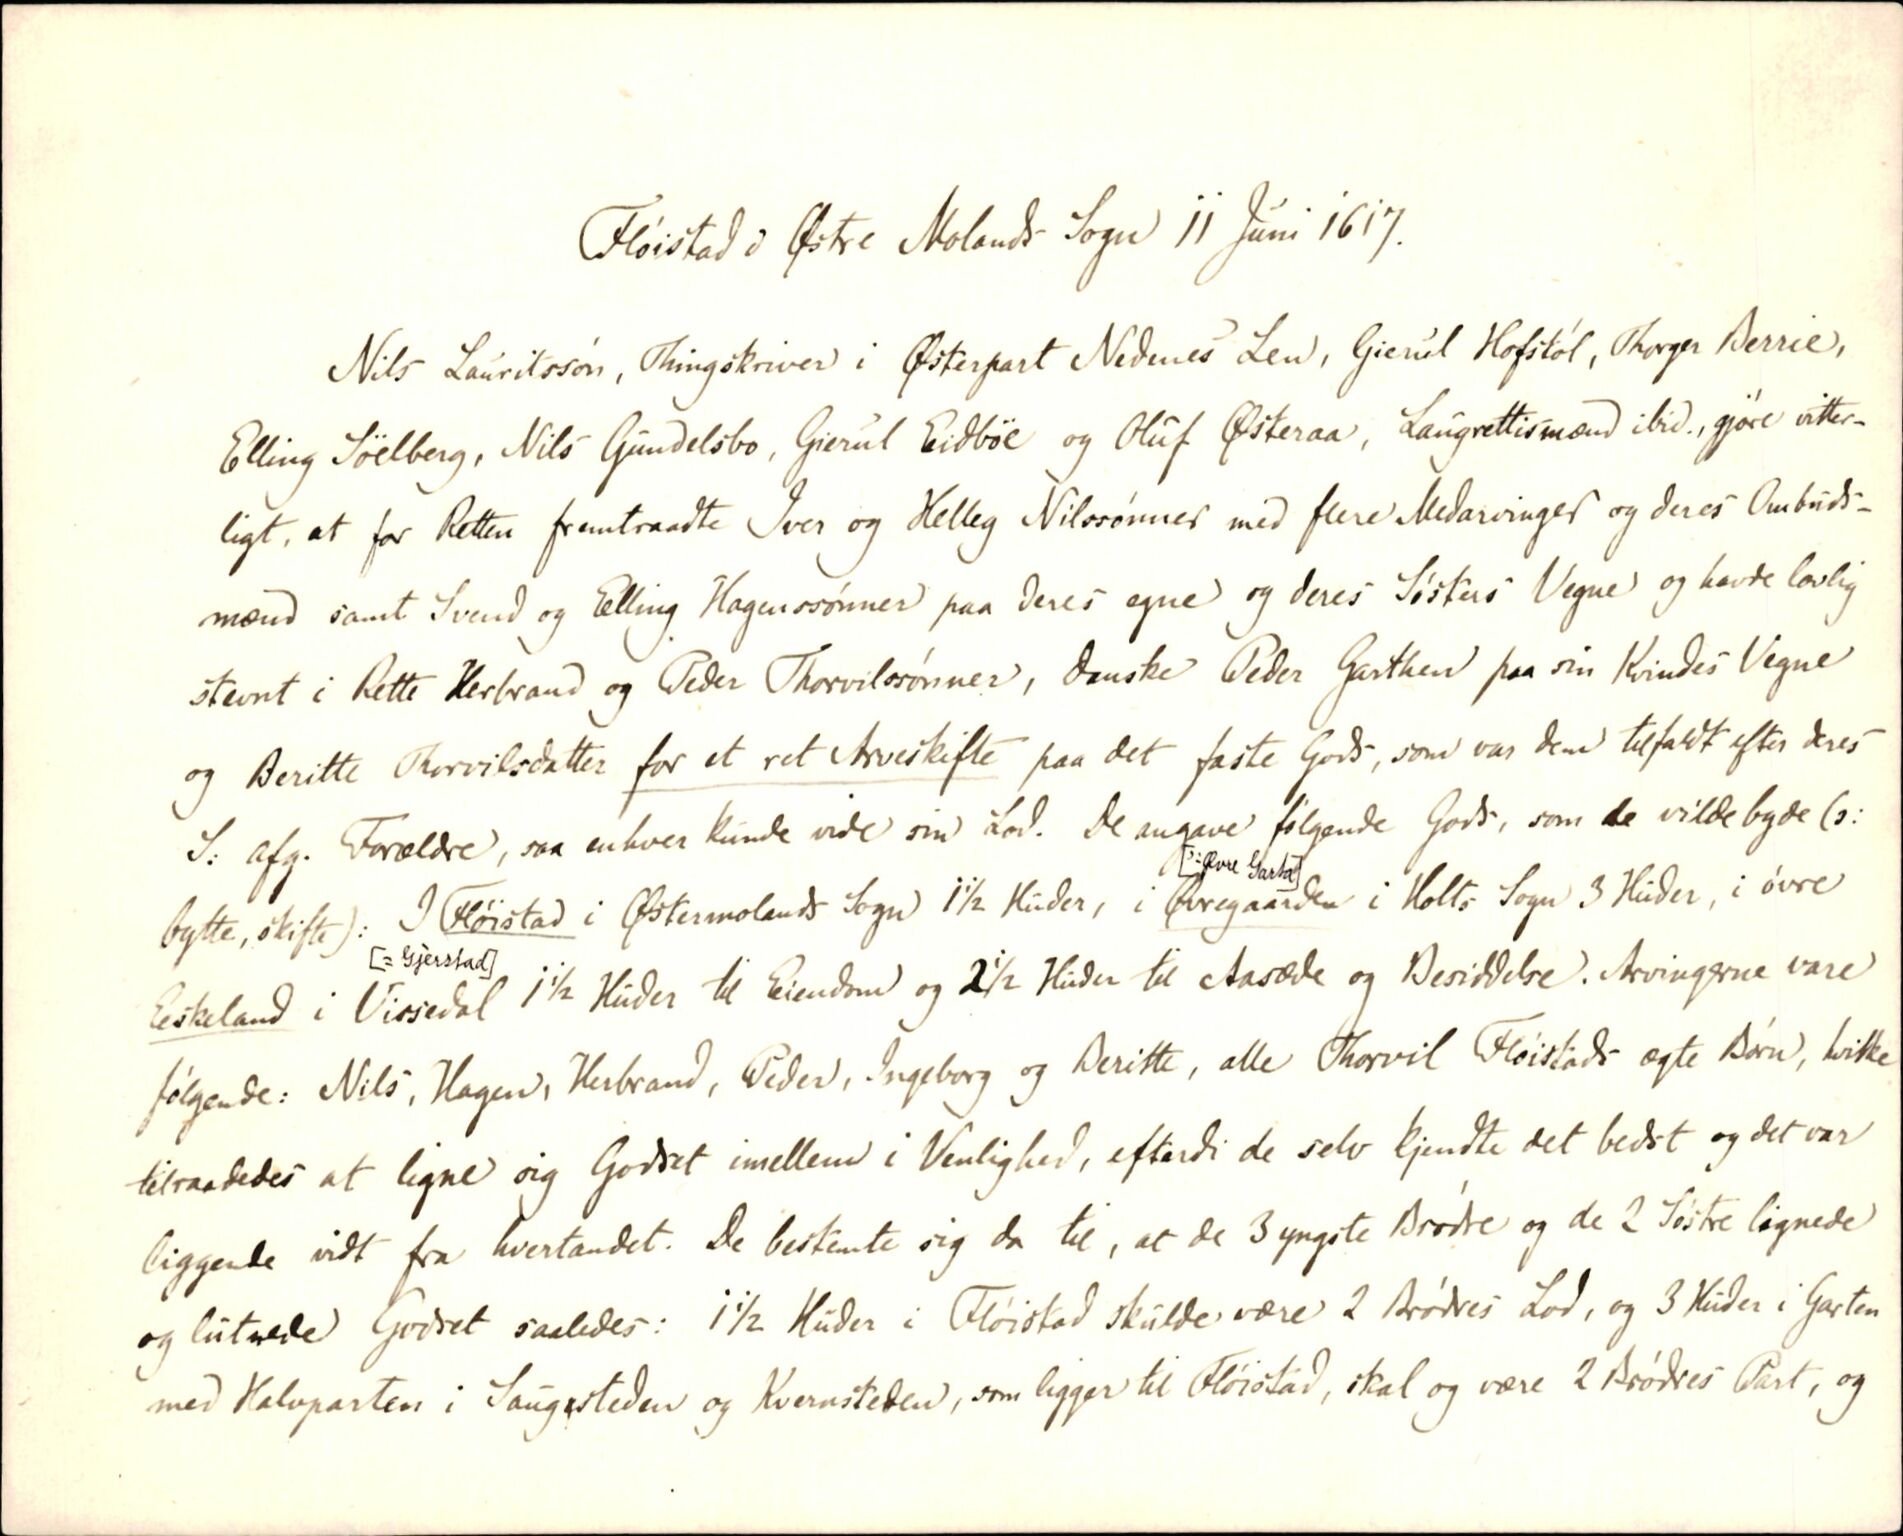 Flöistad i Østre Molands Sogn 11 Juni 1617.
Nils Lauritssön, Thingskriver i Østerpart Nedenes Len, Gierul Hofstöl, Thorger Berrie,
Elling Söelberg, Nils Gundelsbo, Gierul Eidböe og Oluf Østeraa, Laugrettismænd ibid., gjöre vitter-
ligt, at for Retten fremtraadte Iver og Helleg Nilssönner med flere Medarvinger og deres Ombuds-
mænd samt Svend og Elling Hagenssönner paa deres egne og deres Sösters Vegne og havde lovlig
stevnt i Rette Herbrand og Peder Thorvilssönner, danske Peder Garthen paa sin Kvindes Vegne
og Beritte Thorvilsdatter for et ret Arveskifte paa det faste Gods, som var dem tilfaldt efter deres
S: afg. Forældre, saa enhver kunde vide sin Lod. De angave fölgende Gods, som de vilde byde (ɔ:
[ɔ: Øvre Garta]
bytte, skifte): I Flöistad i Østermolands Sogn 1 1/2 Huder, i Øvregaarden i Holts Sogn 3 Huder, i övre
[= Gjerstad]
Eeskeland i Vissedal 1 1/2 Huder til Eiendom og 2 1/2 Huder til Aasæde og Besiddelse. Arvingerne vare
fölgende: Nils, Hagen, Herbrand, Peder, Ingeborg og Beritte, alle Thorvil Flöistads ægte Börn, hvilke
tilraadedes at ligne sig Godset imellem i Venlighed, efterdi de selv kjendte det bedst og det var
liggende vidt fra hvertandet. De bestemte sig da til, at de 3 yngste Brödre og de 2 Söstre lignede
og lutnede Godset saaledes: 1 1/2 Huder i Flöistad skulde være 2 Brödres Lod, og 3 Huder i Garten
med Halvparten i Saugsteden og Kvernsteden, som ligger til Flöistad, skal og være 2 Brödres Part, og